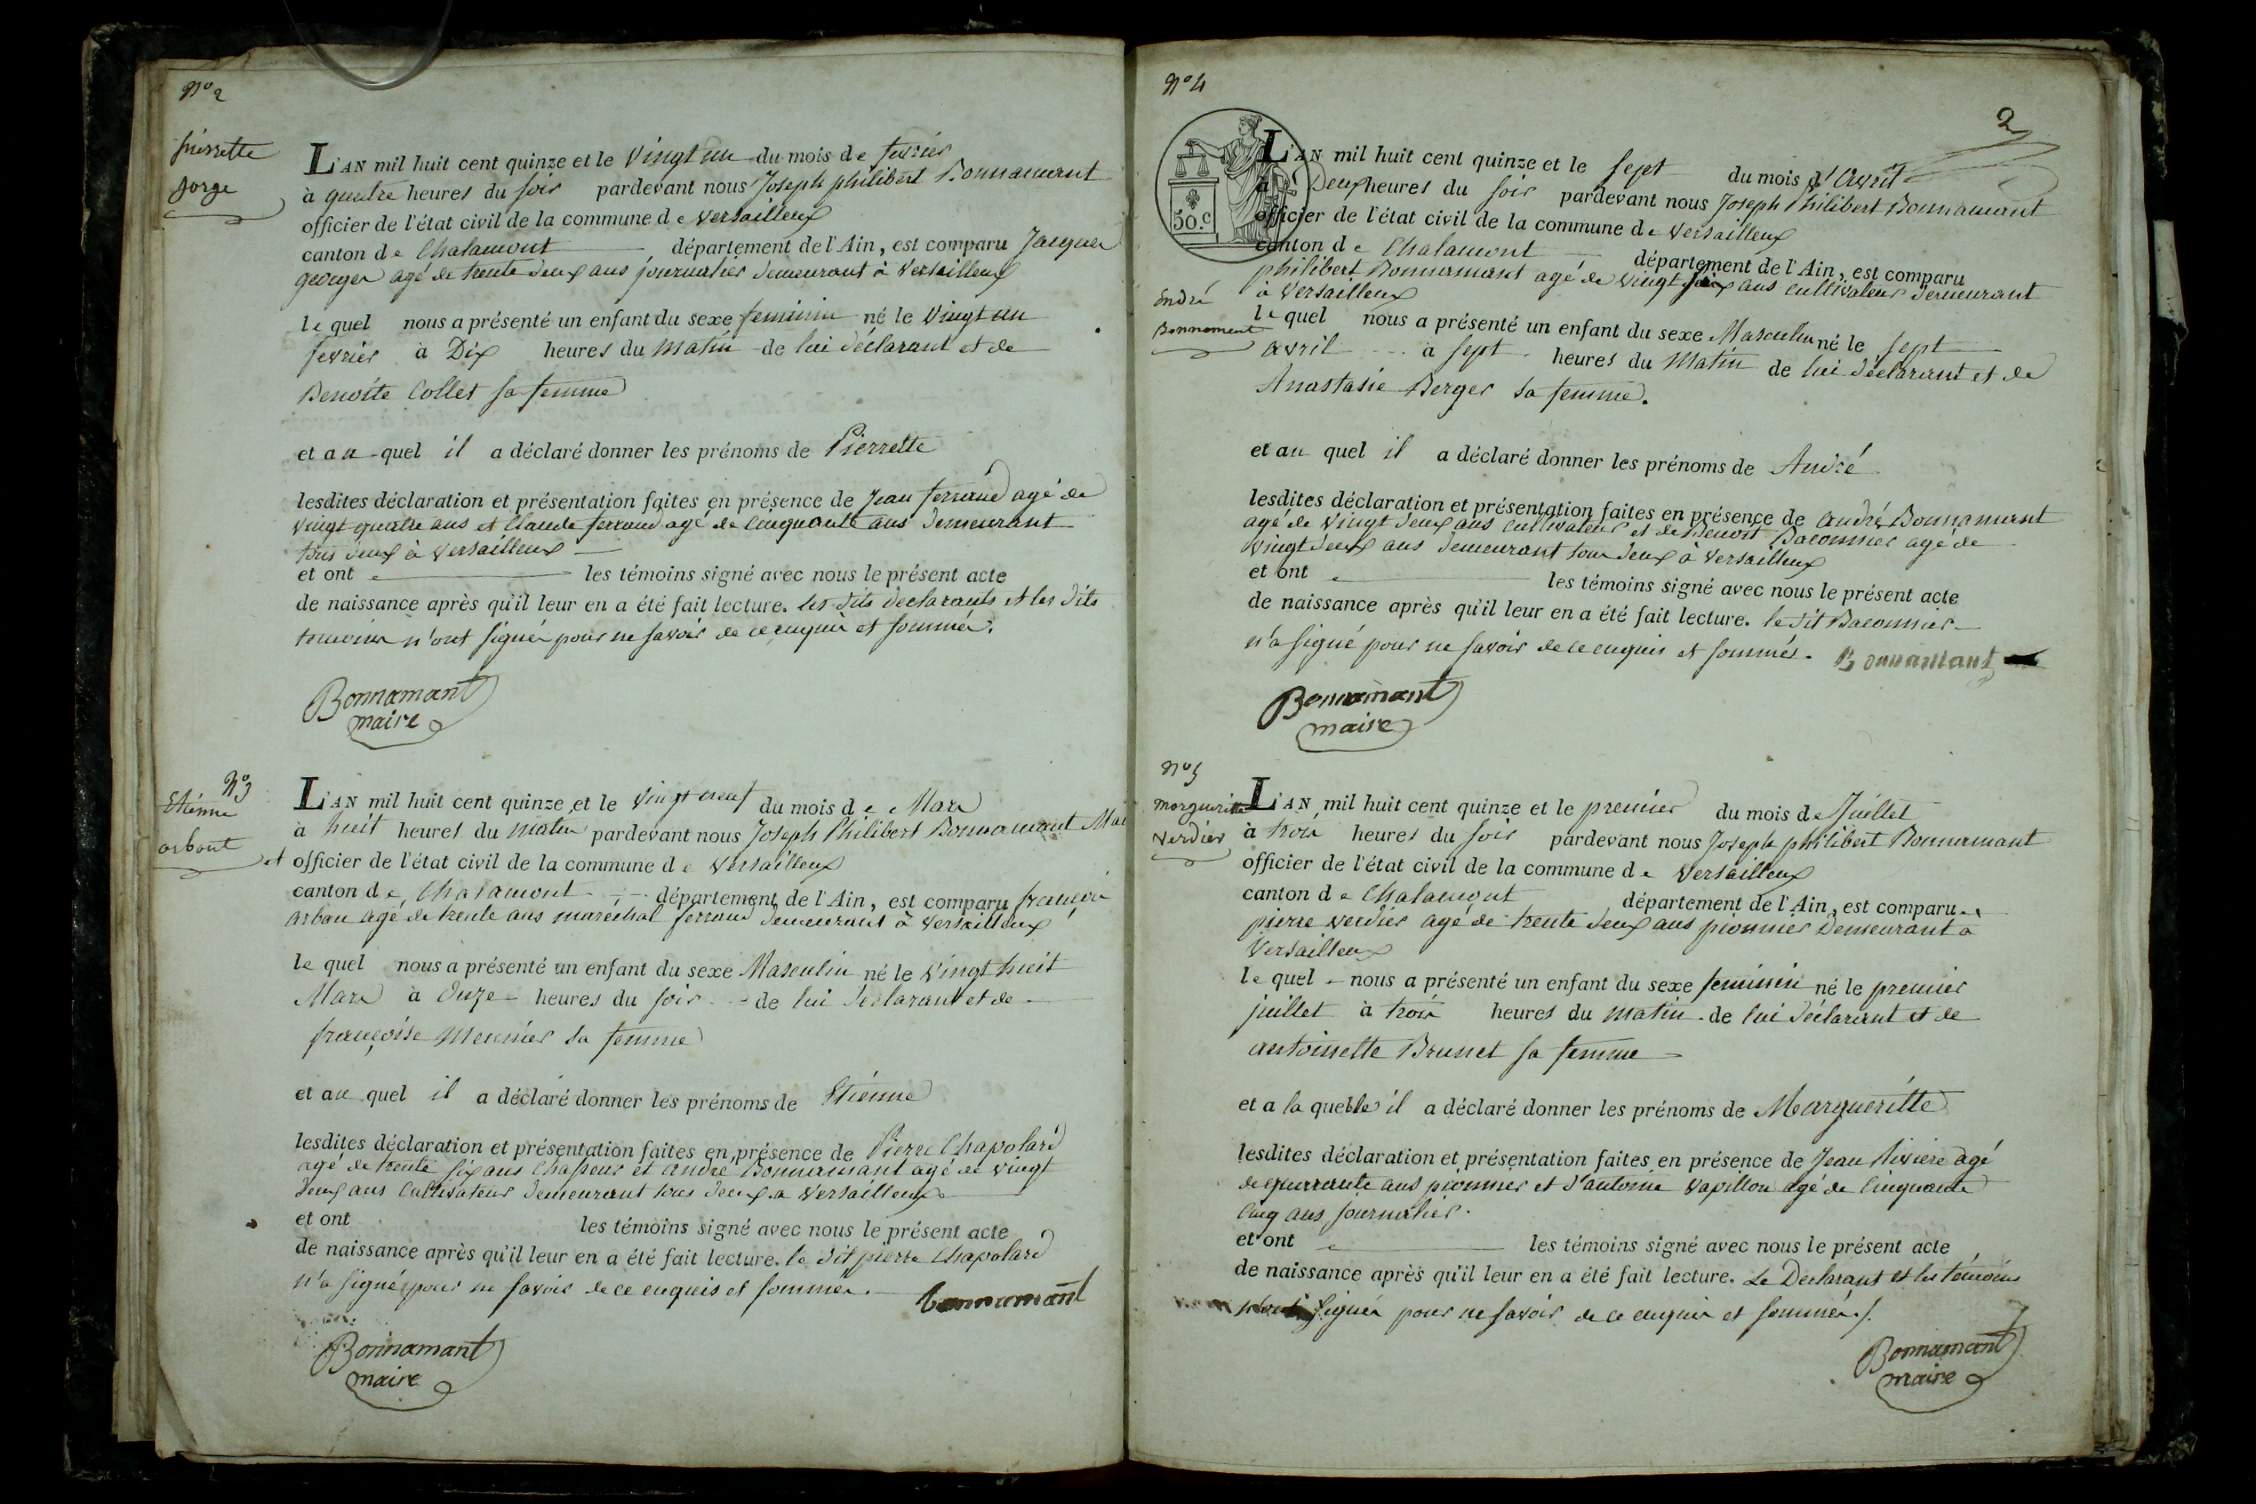 N° 2
pierrette
gorge
L'AN mil huit cent quinze et le vingt un du mois de fevrier
à quatre heures du soir pardevant nous Joseph philibert Bonnamant
officier de l'état civil de la commune de versailleux
canton de Chalamont département de l'Ain, est comparu Jacques
georges agé de trente deux ans journalier demeurant à versailleux
le quel nous a présenté un enfant du sexe feminin né le vingt un
fevrier à Dix heures du matin de lui déclarant et de
Benoite Collet sa femme
et au quel il a déclaré donner les prénoms de Pierrette
lesdites déclaration et présentation faites en présence de Jean ferrand agé de
vingt quatre ans et Claude ferrand agé de cinquante ans demeurant
tous deux à versailleux
et ont les témoins signé avec nous le présent acte
de naissance après qu'il leur en a été fait lecture. les dits declarants et les dits
temoins n'ont signés pour ne savoir de ce enquis et sommés.
Bonnamant
maire
N° 3
Etienne
arbout
L'AN mil huit cent quinze et le vingt neuf du mois de Mars
à huit heures du matin pardevant nous Joseph Philibert Bonnamant Mai
et officier de l'état civil de la commune de versailleux
canton de Chalamont département de l'Ain, est comparu françois
arbau agé de trente ans marechal ferrand demeurant à versailleux
le quel nous a présenté un enfant du sexe Masculin né le vingt huit
Mars à Onze heures du soir de lui declarant et de
françoise Meunier sa femme
et au quel il a déclaré donner les prénoms de Etienne
lesdites déclaration et présentation faites en présence de Pierre Chapolard
agé de trente six ans Chasseur et andré Bonnamant agé de vingt
deux ans Cultivateur demeurant tous deux a versailleux
et ont les témoins signé avec nous le présent acte
de naissance après qu'il leur en a été fait lecture. le dit pierre Chapolard
n'a signé pour ne savoir de ce enquis et sommés.
bonnamant
Bonnamant
maire
N° 4
2
50.c
André
Bonnament
L'AN mil huit cent quinze et le sept du mois d'Avril
à Deux heures du soir pardevant nous Joseph Philibert Bonnamant
officier de l'état civil de la commune de versailleux
canton de Chalamont département de l'Ain, est comparu
philibert Bonnamant agé de vingt six ans cultivateur demeurant
à versailleux
le quel nous a présenté un enfant du sexe Masculin né le sept
avril à sept heures du Matin de lui déclarant et de
Anastasie Berger sa femme.
et au quel il a déclaré donner les prénoms de André
lesdites déclaration et présentation faites en présence de andré Bonnamant
agé de vingt deux ans cultivateur et de Benoit Baconnier agé de
vingt deux ans demeurant tous deux à versailleux
et ont les témoins signé avec nous le présent acte
de naissance après qu'il leur en a été fait lecture. le dit Baconnier
n'a signé pour ne savoir de ce enquis et sommés. Bonnamant
Bonnamant
maire
N° 5
margueritte
verdier
L'AN mil huit cent quinze et le premier du mois de Juillet
à trois heures du soir pardevant nous Joseph philibert Bonnamant
officier de l'état civil de la commune de versailleux
canton de Chalamont département de l'Ain, est comparu
pierre verdier agé de trente deux ans pionnier Demeurant a
versailleux
le quel nous a présenté un enfant du sexe feminin né le premier
juillet à trois heures du matin de lui déclarant et de
antoinette Brunet sa femme
et a la quelle il a déclaré donner les prénoms de Margueritte
lesdites déclaration et présentation faites en présence de Jean Riviere agé
de quarante ans pionnier et d'antoine vapillon agé de Cinquante
Cinq ans journalier.
et ont les témoins signé avec nous le présent acte
de naissance après qu'il leur en a été fait lecture. Le Declarant et les temoins
n'ont signés pour ne savoir de ce enquis et sommés./.
Bonnamant
maire